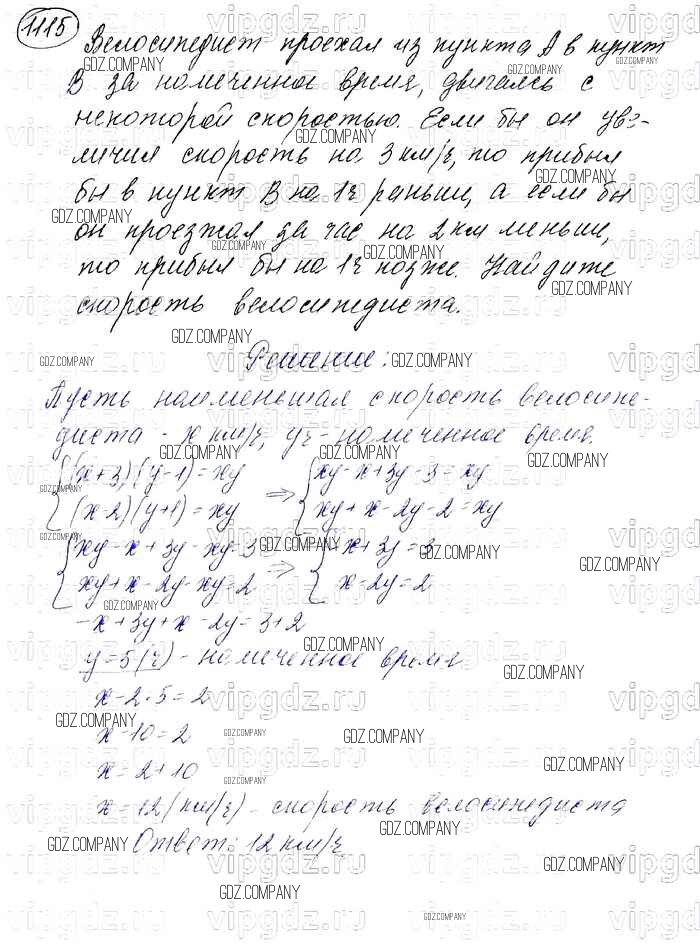 1115
Велосипедист проехал из пункта A в пункт
B за намеченное время, двигаясь с
некоторой скоростью. Если бы он уве-
личил скорость на 3 км/ч, то прибыл
бы в пункт B на 1ч раньше, а если бы
он проезжал за час на 2 км меньше,
то прибыл бы на 1ч позже. Найдите
скорость велосипедиста.
Решение:
Пусть наименьшая скорость велосипе-
диста - x км/ч, yч - намеченное время.
{(x+3)(y-1)=xy => {xy-x+3y-3=xy
{(x-2)(y+1)=xy {xy+x-2y-2=xy
{xy-x+3y-xy=3 => {-x+3y=3
{xy+x-2y-xy=2 {x-2y=2
-x+3y+x-2y=3+2
y=5(ч) - намеченное время
x-2·5=2
x-10=2
x=2+10
x=12(км/ч) - скорость велосипедиста
Ответ: 12 км/ч
GDZ.COMPANY
vipgdz.ru